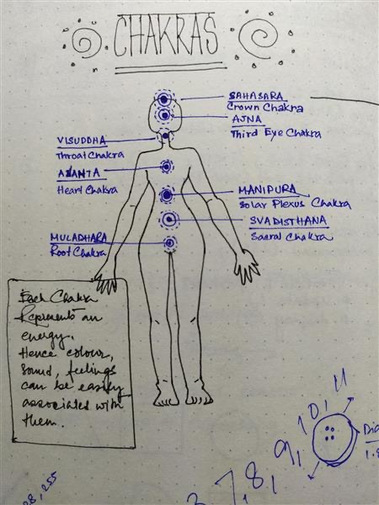 CHAKRAS
SAHASARA
Crown Chakra
AJNA
Third Eye Chakra
VISUDDHA
Throat Chakra
Heart Chakra
MANIPURA
Solar Plexus Chakra
SVADISTHANA
Sacral Chakra
MULADHARA
Root Chakra
Each Chakra
Represents an
energy.
Hence colour,
Sound, feelings
can be easily
associated with
them.
7, 8, 9, 10, 11
Dia
1.8
28, 255